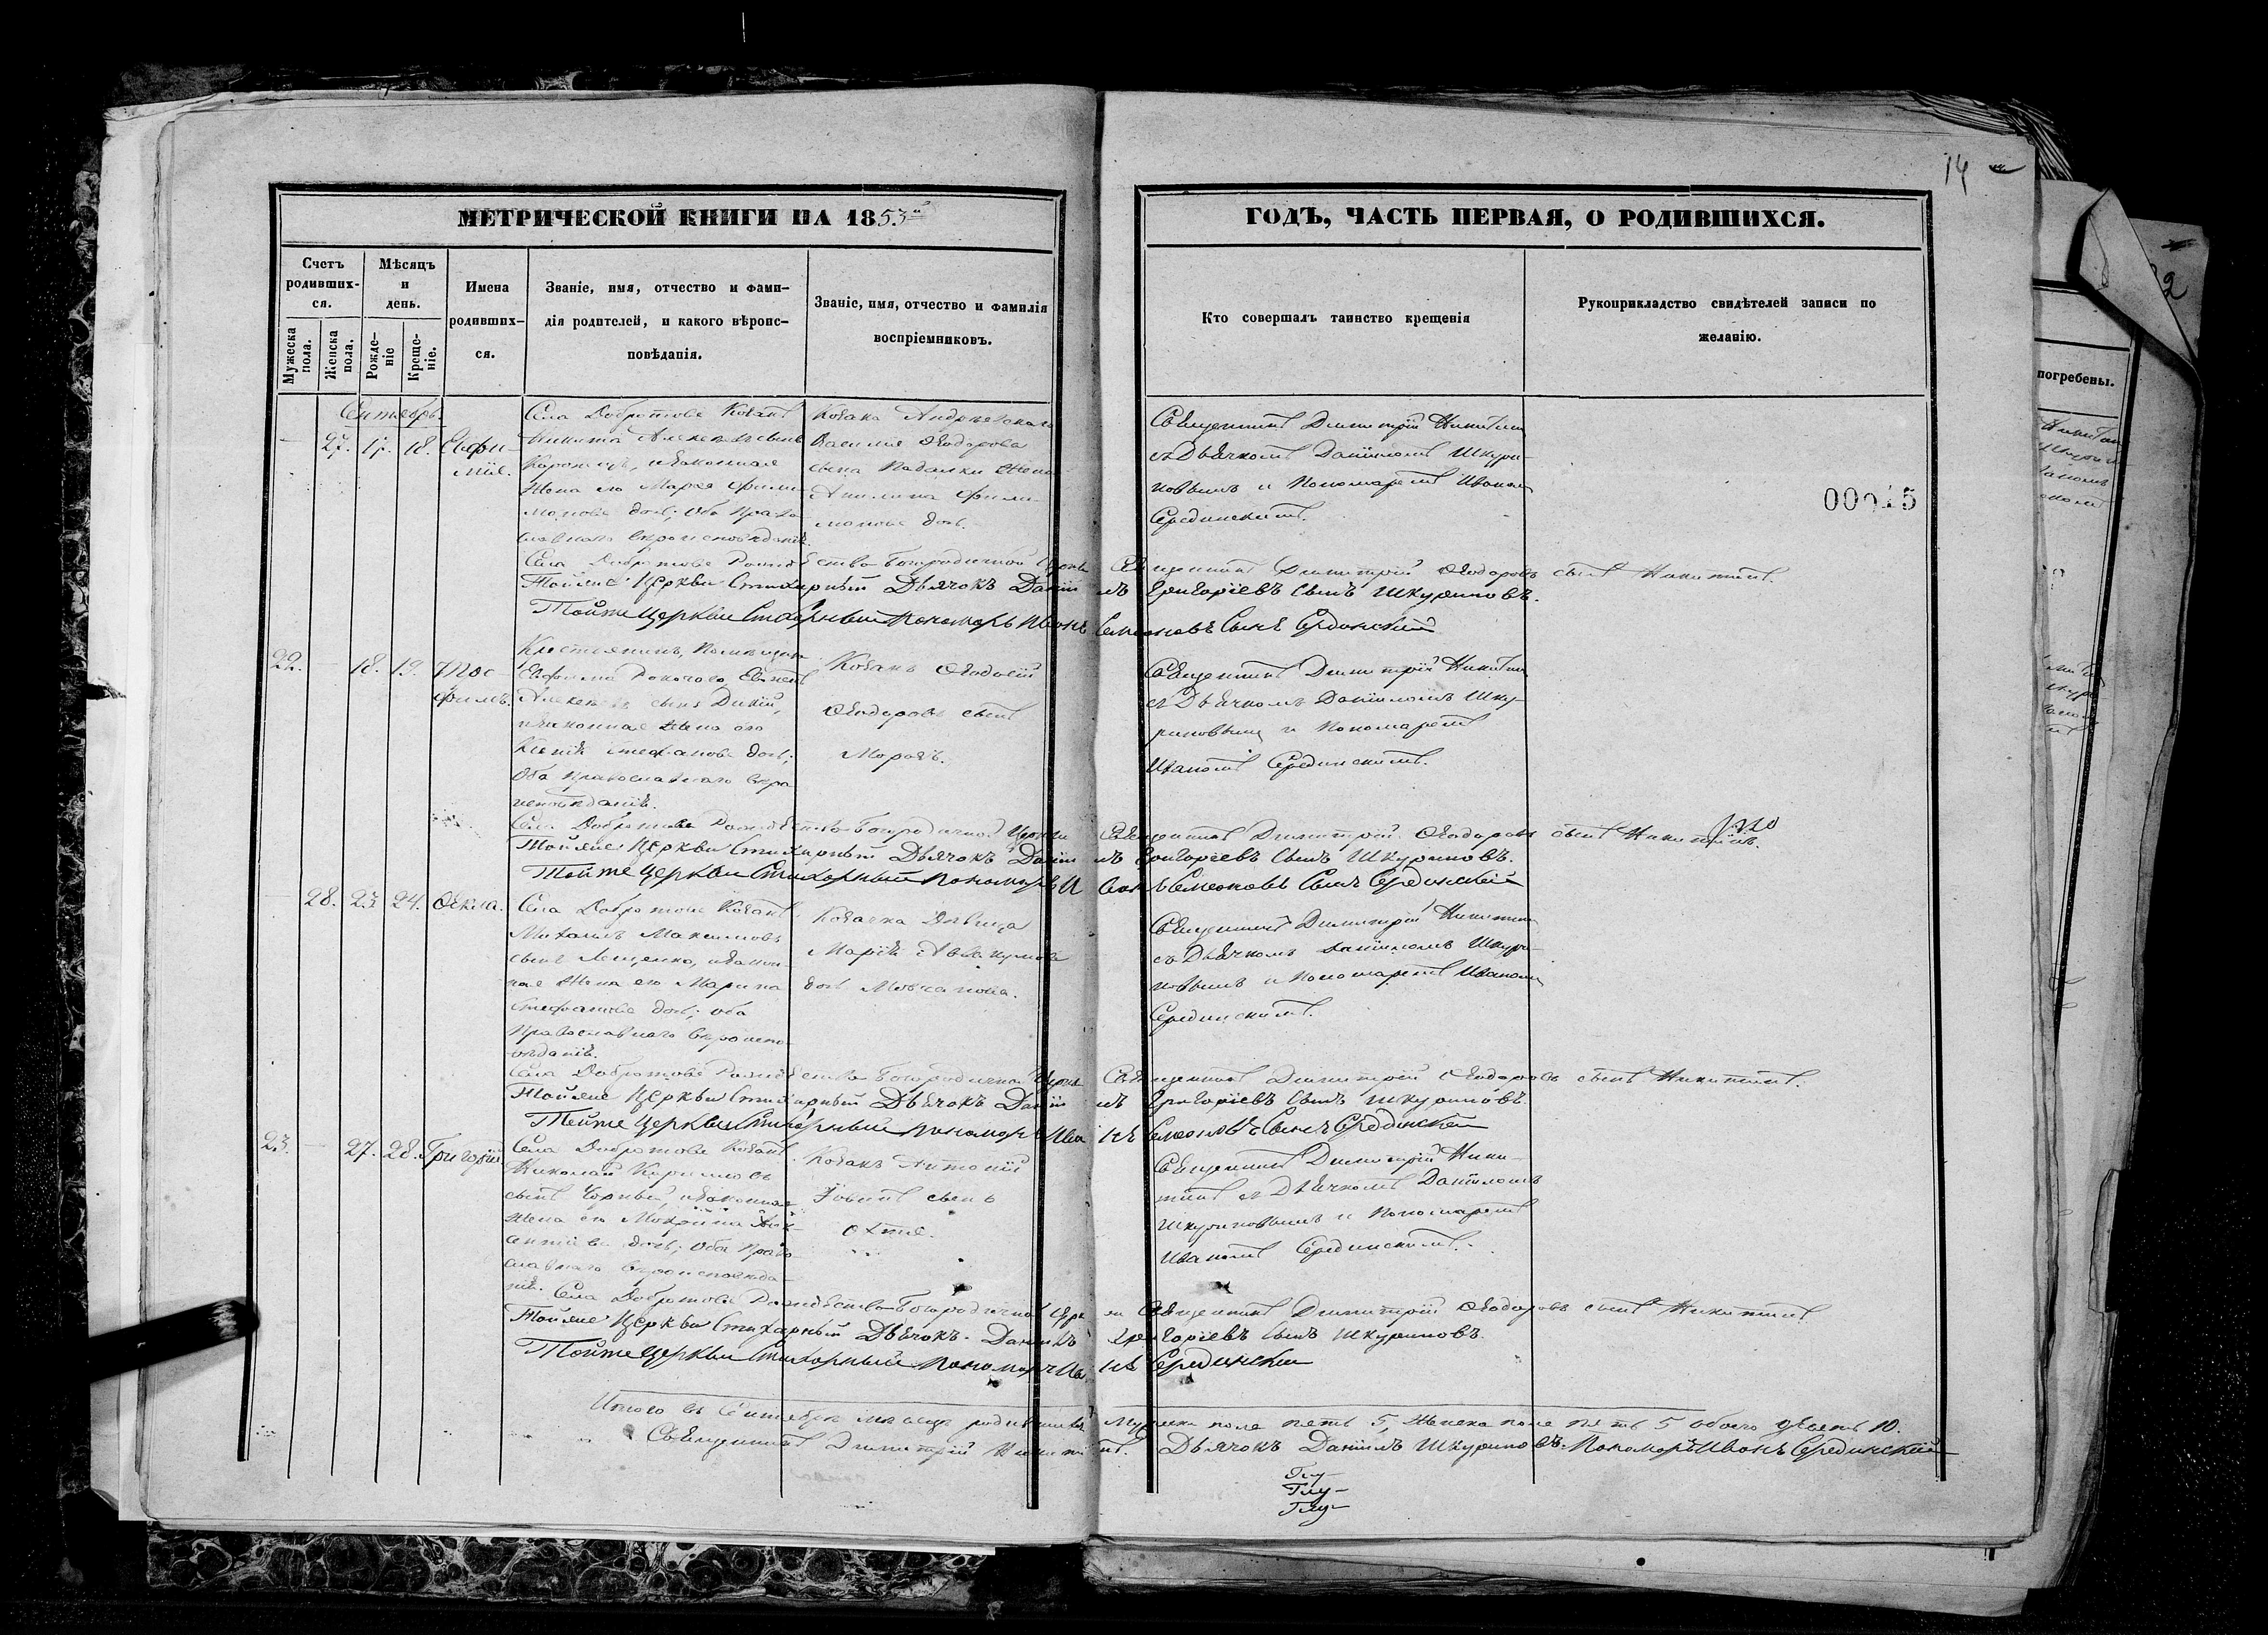 14
МЕТРИЧЕСКОЙ КНИГИ НА 1853й
ГОДЪ, ЧАСТЬ ПЕРВАЯ, О РОДИВШИХСЯ.
Счетъ родивших-ся.
Мужеска пола.
Женска пола.
Мѣсяцъ и день.
Рожде-ніе
Креще-ніе.
Имена родивших-ся.
Званіе, имя, отчество и фами-лія родителей, и какого вѣроис-повѣданія.
Званіе, имя, отчество и фамилія воспріемниковъ.
Кто совершалъ таинство крещенія
Рукоприкладство свидѣтелей записи по желанію.
00015
Сентябрь
27. 17. 18. Евфи-
мія.
Села Добротова Козакъ
Никита Алексѣевъ сынъ
законная
Жена его Марѳа Фили-
монова дочь; Оба Право-
славнаго вѣроисповѣданія.
Козака
Василія Ѳеодорова
сына Падалки Жена
Акилина Фили-
монова дочь.
Священникъ Димитрій Никитинъ
съ Дьячкомъ Даніиломъ Шкури-
новымъ и Пономаремъ Иваномъ
Серединскимъ.
Села Добротова Рождество-Богородичной Церкви Священникъ Димитрій Ѳеодоровъ сынъ Никитинъ.
Тойже Церкви Стихарный Дьячокъ Даніилъ Григоріевъ Сынъ Шкуриновъ.
Тойже Церкви Стихарный Пономарь Иванъ Семеоновъ Сынъ Серединский
22. 18. 19. Тро-
фимъ.
Крестьянинъ, Помѣщика
Евфима
Алексѣевъ сынъ Дикій,
и законная жена его
Ксенія Стефанова дочь;
Оба православнаго вѣро
исповѣданія.
Козакъ Ѳеодосій
Ѳеодоровъ сынъ
Морозъ.
Священникъ Димитрій Никитинъ
съ Дьячкомъ Даніиломъ Шку-
риновымъ и Пономаремъ
Иваномъ Серединскимъ.
Села Добротова Рождество-Богородичной Церкви Священникъ Димитрій Ѳеодоровъ сынъ Никитинъ.
Тойже Церкви Стихарный Дьячокъ Даніилъ Григоріевъ Сынъ Шкуриновъ.
Тойже Церкви Стихарный Пономарь Иванъ Семеоновъ Сынъ Серединский
28. 23. 24. Ѳекла.
Села Добротова Козакъ
Михаилъ Максимовъ
сынъ Лещенко, и закон-
ная Жена его Марина
Стефанова дочь; Оба
Православнаго вѣроиспо-
вѣданія.
Козачка Дѣвица
Марія Аввакумова
дочь Мовчанова.
Священникъ Димитрій Никитинъ
съ Дьячкомъ Даніиломъ Шкури-
новымъ и Пономаремъ Иваномъ
Серединскимъ.
Села Добротова Рождество-Богородичной Церкви Священникъ Димитрій Ѳеодоровъ сынъ Никитинъ.
Тойже Церкви Стихарный Дьячокъ Даніилъ Григоріевъ Сынъ Шкуриновъ.
Тойже Церкви Стихарный Пономарь Иванъ Семеоновъ Сынъ Серединский
23. 27. 28. Григорій
Села Добротова Козакъ
Николай Кириловъ
сынъ Чорный, и законная
жена его
дочь; Оба Право-
славнаго вѣроисповѣда-
нія.
Козакъ Антоній
сынъ
Священникъ Димитрій Ники-
тинъ съ Дьячкомъ Даніиломъ
Шкуриновымъ и Пономаремъ
Иваномъ Серединскимъ.
Села Добротова Рождество-Богородичной Церкви Священникъ Димитрій Ѳеодоровъ сынъ Никитинъ
Тойже Церкви Стихарный Дьячокъ Даніилъ Григоріевъ Сынъ Шкуриновъ.
Тойже Церкви Стихарный Пономарь Иванъ Серединский
Итого въ Сентябрѣ мѣсяцѣ родившихся Мужеска пола пять 5, Женска пола пять 5 обоего десять 10.
Священникъ Димитрій Никитинъ. Дьячокъ Даніилъ Шкуриновъ. Пономарь Иванъ Серединскій
погребены.